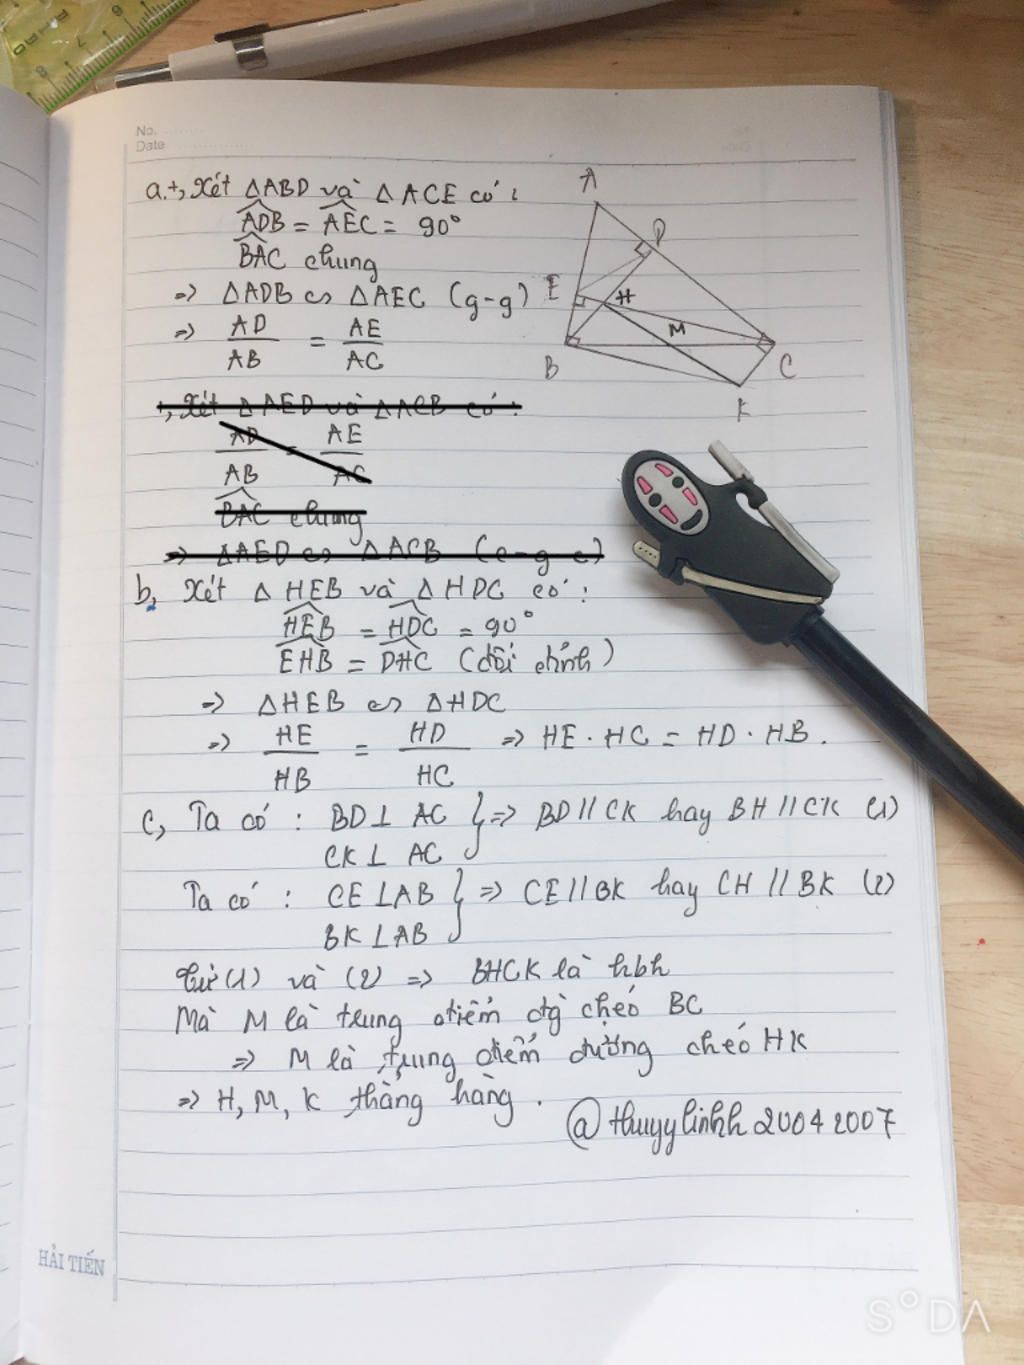 No.
Date
a.+, Xét ΔABD và ΔACE có:
ADB = AEC = 90°
BAC chung
=> ΔADB ∽ ΔAEC (g-g)
=> AD/AB = AE/AC
+, Xét ΔAED và ΔACB có:
AD/AB = AE/AC
BAC chung
=> ΔAED ∽ ΔACB (c-g-c)
b, Xét ΔHEB và ΔHDC có:
HEB = HDC = 90°
EHB = DHC (đối đỉnh)
=> ΔHEB ∽ ΔHDC
=> HE/HB = HD/HC => HE . HC = HD . HB.
c, Ta có : BD⊥ AC } => BD // CK hay BH // CK (1)
CK⊥ AC
Ta có : CE⊥AB } => CE // BK hay CH // BK (2)
BK⊥AB
Từ (1) và (2) => BHCK là hbh
Mà M là trung điểm đg chéo BC
=> M là trung điểm đường chéo HK
=> H, M, K thẳng hàng.
@thuyylinhh20042007
A
D
E
H
M
B
C
K
HẢI TIẾN
SODA